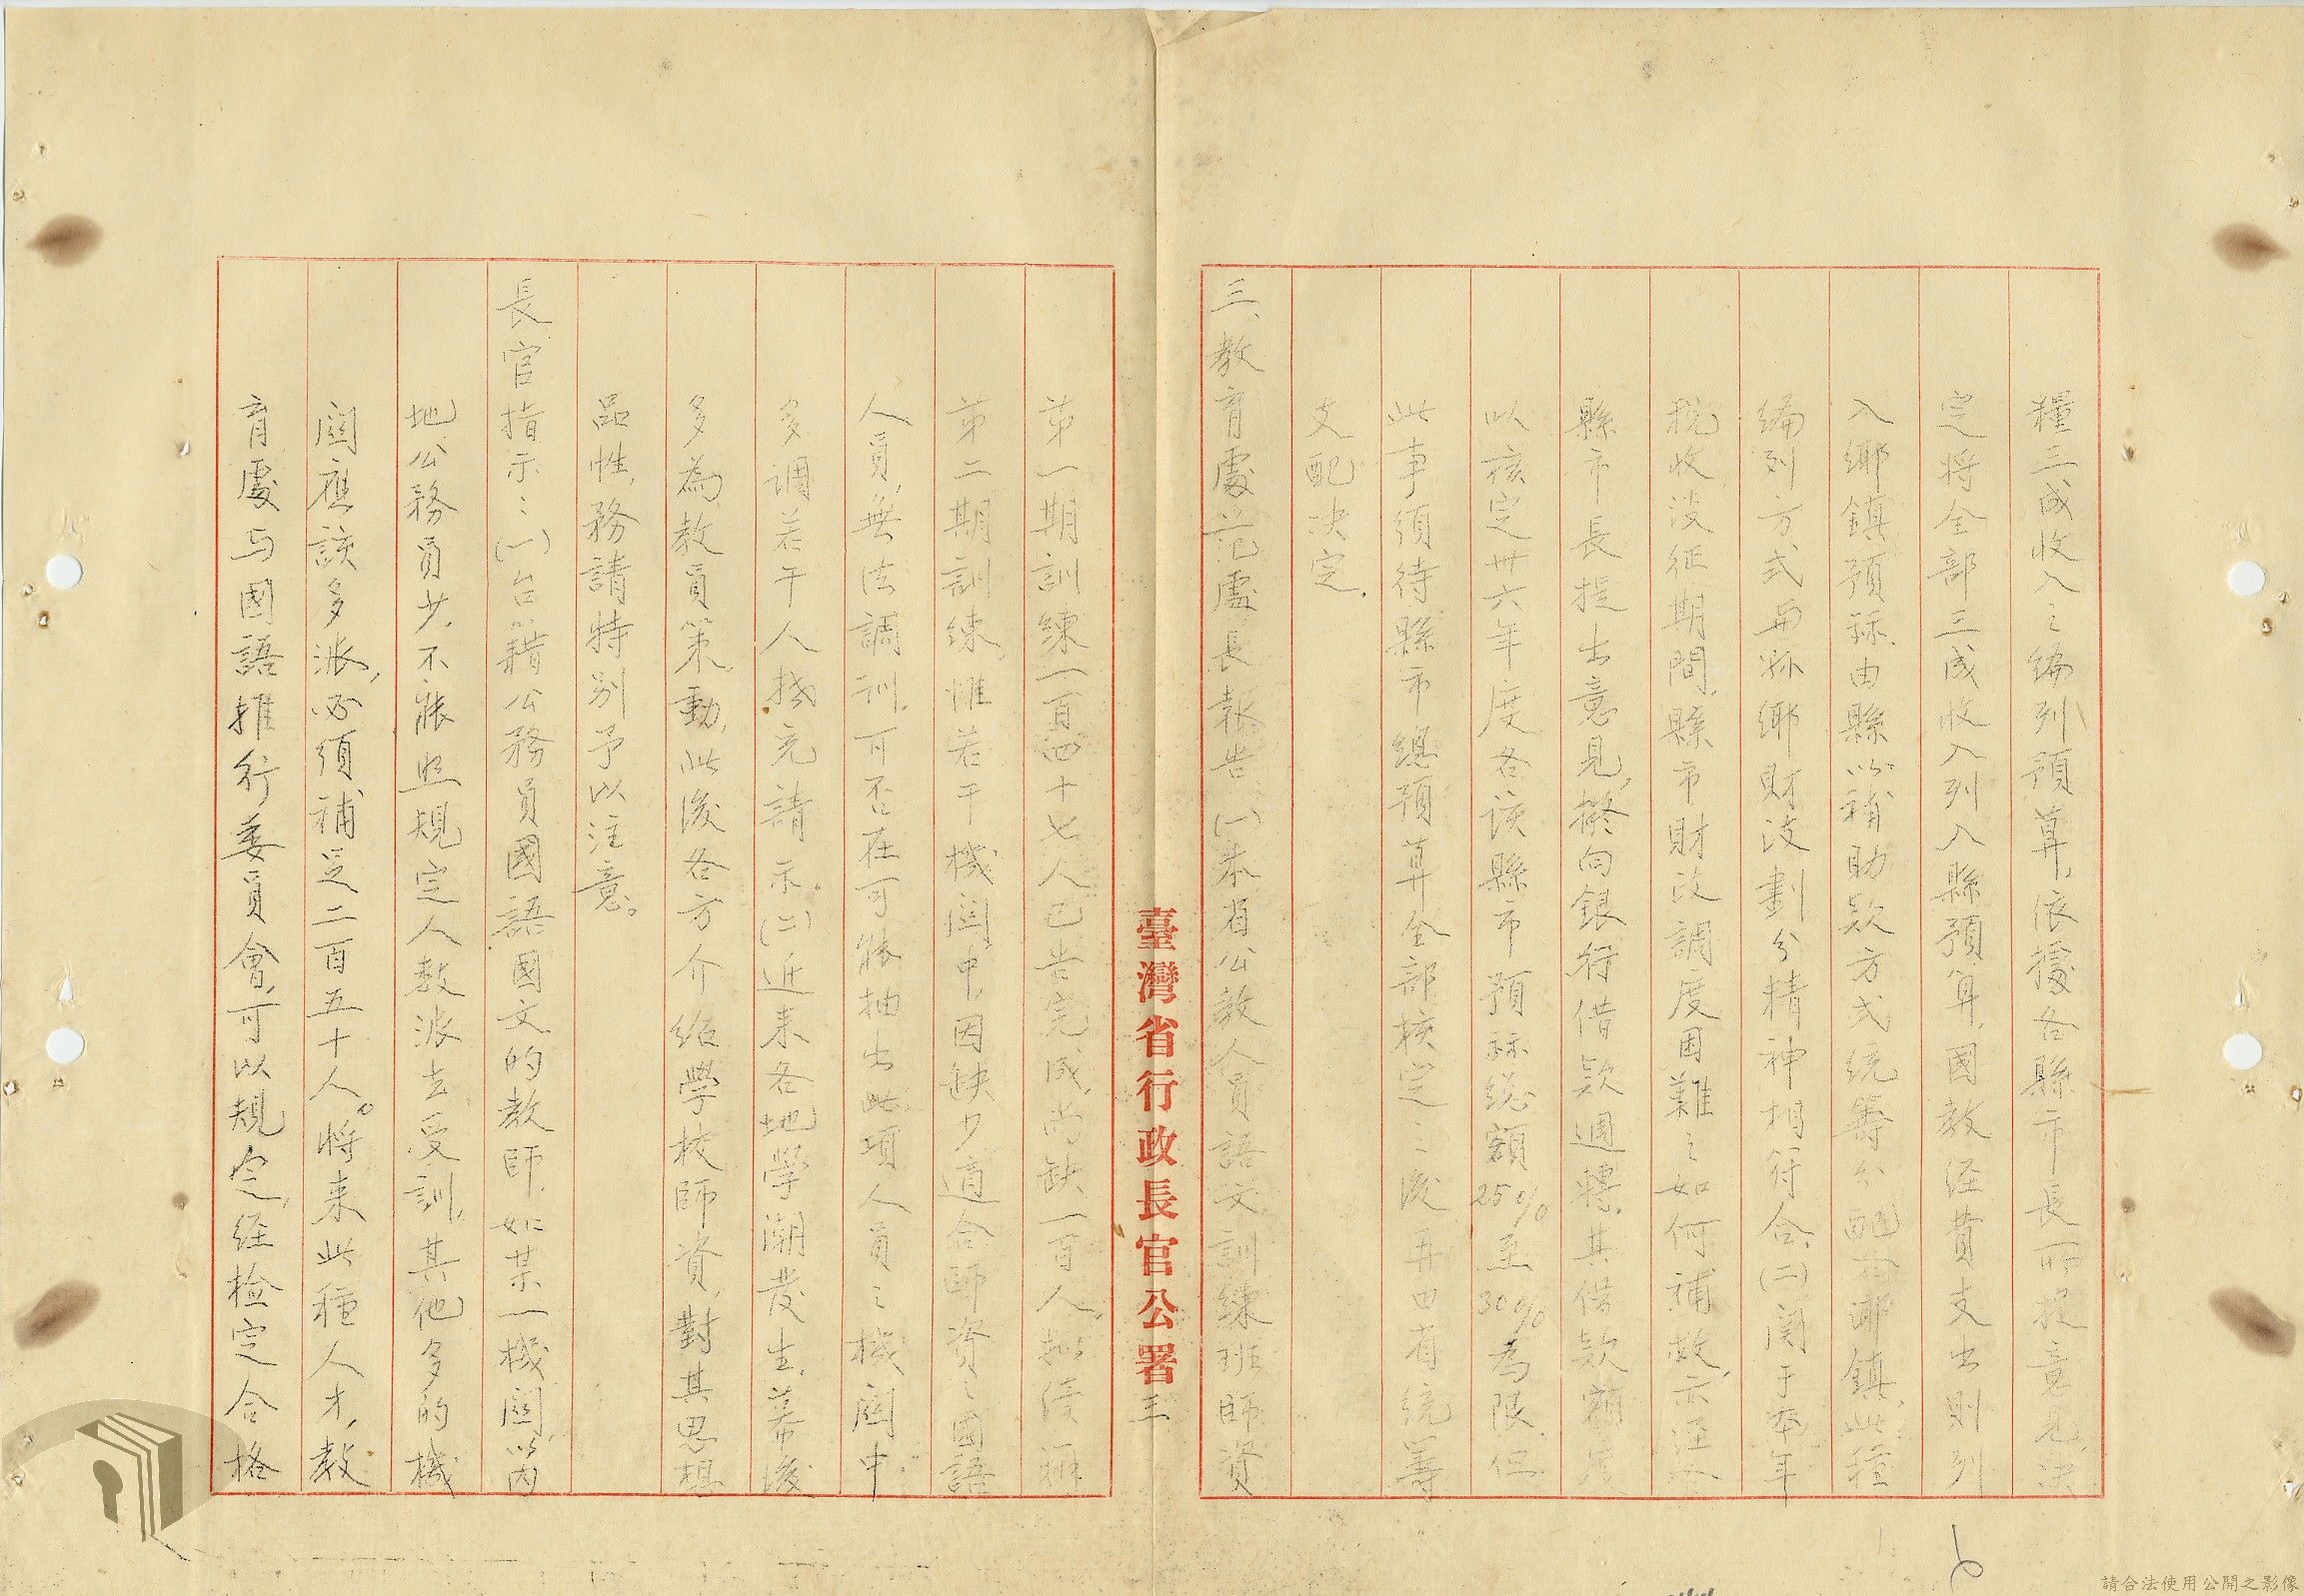 糧三成收入之編列預算，依據各縣市長所提意見，決
定將全部三成收入列入縣預算，國教經費支出則列
入鄉鎮預祘，由縣以補助款方式統籌分配各鄉鎮，此種
編列方式與縣鄉財政劃分精神相符合。(二)関于本年
稅收淡征期間，縣市財政調度困難之如何補救，亦經各
縣市長提出意見，擬向銀行借款週轉，其借款額
以核定卅六年度各該縣市預祘總額25%至30%為限，但
此事須待縣市總預算全部核定之後，再由省統籌
支配決定.
三、教育處范處長報告：(一)本省公教人員語文訓練班師資
臺灣省行政長官公署
第一期訓練一百四十七人已告完成，尚缺一百人，擬續辦
第二期訓練，惟若干機関中，因缺少適合師資之國語
人員，無法調訓，可否在可能抽出此項人員之機関中，
多調若干人撥充請示。(二)近來各地學潮發生，幕後
多為教員策動，此後各方介紹學校師資，對其思想
品性，務請特別予以注意。
長官指示：(一)台籍公務員國語國文的教師，如某一機関，
地公務員少，不能照規定人數派去受訓，其他多的機
関應該多派，必須補足二百五十人。將來此種人才，教
育處与國語推行委員會，可以規定，經檢定合格
請合法使用公開之影像